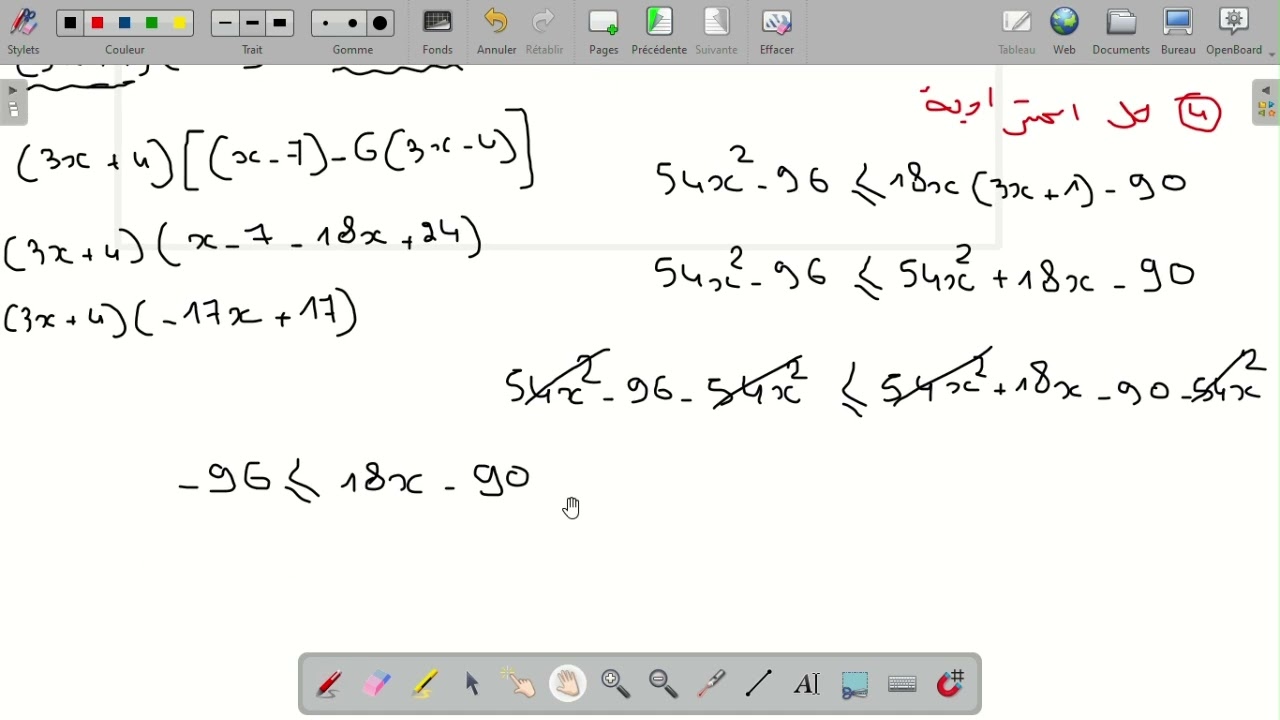 Stylets Couleur Trait Gomme Fonds Annuler Rétablir Pages Précédente Suivante Effacer Tableau Web Documents Bureau OpenBoard
(3x + 4)[(x - 7) - 6(3x - 4)]
(3x + 4)(x - 7 - 18x + 24)
(3x + 4)(-17x + 17)
④ حل المتراجحة
54x² - 96 ≤ 18x(3x + 1) - 90
54x² - 96 ≤ 54x² + 18x - 90
54x² - 96 - 54x² ≤ 54x² + 18x - 90 - 54x²
-96 ≤ 18x - 90